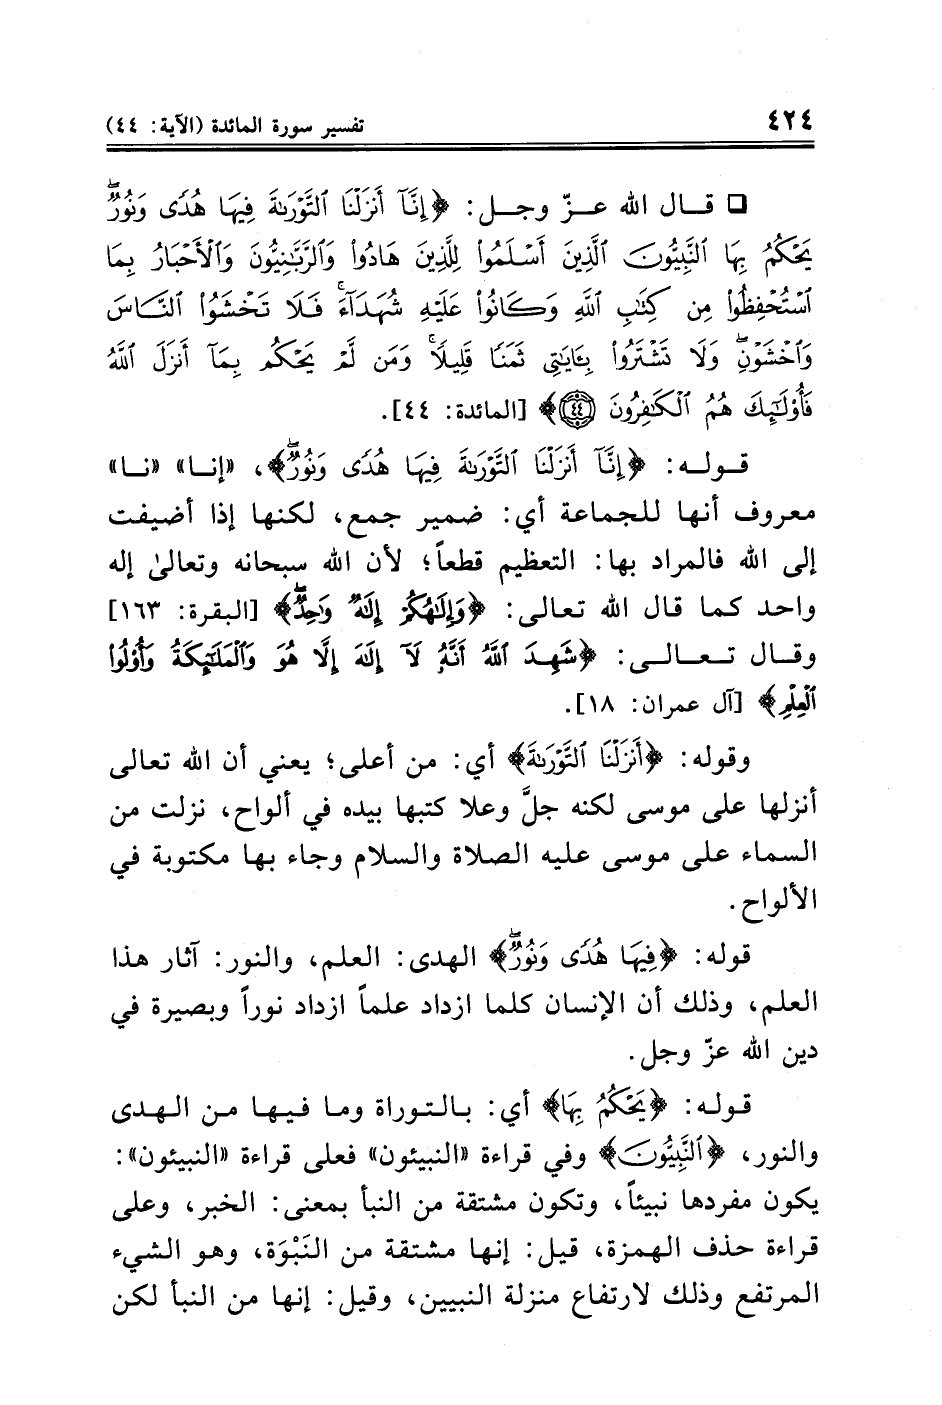 ٤٢٤ تفسير سورة المائدة (الآية: ٤٤)
❏ قـال الله عـزّ وجـل: ﴿إِنَّآ أَنزَلْنَا ٱلتَّوْرَىٰةَ فِيهَا هُدًى وَنُورٌۚ
يَحْكُمُ بِهَا ٱلنَّبِيُّونَ ٱلَّذِينَ أَسْلَمُوا۟ لِلَّذِينَ هَادُوا۟ وَٱلرَّبَّـٰنِيُّونَ وَٱلْأَحْبَارُ بِمَا
ٱسْتُحْفِظُوا۟ مِن كِتَـٰبِ ٱللَّهِ وَكَانُوا۟ عَلَيْهِ شُهَدَآءَۚ فَلَا تَخْشَوُا۟ ٱلنَّاسَ
وَٱخْشَوْنِۖ وَلَا تَشْتَرُوا۟ بِـَٔايَـٰتِى ثَمَنًا قَلِيلًاۚ وَمَن لَّمْ يَحْكُم بِمَآ أَنزَلَ ٱللَّهُ
فَأُو۟لَـٰٓئِكَ هُمُ ٱلْكَـٰفِرُونَ ٤٤﴾ [المائدة: ٤٤].
قـولـه: ﴿إِنَّآ أَنزَلْنَا ٱلتَّوْرَىٰةَ فِيهَا هُدًى وَنُورٌۖ﴾، «إنـا» «نـا»
معروف أنها للجماعة أي: ضمير جمع، لكنها إذا أضيفت
إلى الله فالمراد بها: التعظيم قطعاً؛ لأن الله سبحانه وتعالىٰ إله
واحد كما قال الله تعالى: ﴿وَإِلَـٰهُكُمْ إِلَـٰهٌ وَٰحِدٌۖ﴾ [البقرة: ١٦٣]
وقـال تـعـالـى: ﴿شَهِدَ ٱللَّهُ أَنَّهُۥ لَآ إِلَـٰهَ إِلَّا هُوَ وَٱلْمَلَـٰٓئِكَةُ وَأُو۟لُوا۟
ٱلْعِلْمِ﴾ [آل عمران: ١٨].
وقوله: ﴿أَنزَلْنَا ٱلتَّوْرَىٰةَ﴾ أي: من أعلى؛ يعني أن الله تعالى
أنزلها على موسى لكنه جلَّ وعلا كتبها بيده في ألواح، نزلت من
السماء على موسى عليه الصلاة والسلام وجاء بها مكتوبة في
الألواح.
قوله: ﴿فِيهَا هُدًى وَنُورٌۖ﴾ الهدى: العلم، والنور: آثار هذا
العلم، وذلك أن الإنسان كلما ازداد علماً ازداد نوراً وبصيرة في
دين الله عزّ وجل.
قـولـه: ﴿يَحْكُمُ بِهَا﴾ أي: بـالـتـوراة ومـا فـيـهـا مـن الـهـدى
والنور، ﴿ٱلنَّبِيُّونَ﴾ وفي قراءة «النبيئون» فعلى قراءة «النبيئون»:
يكون مفردها نبيئاً، وتكون مشتقة من النبأ بمعنى: الخبر، وعلى
قراءة حذف الهمزة، قيل: إنها مشتقة من النَبْوَة، وهو الشيء
المرتفع وذلك لارتفاع منزلة النبيين، وقيل: إنها من النبأ لكن